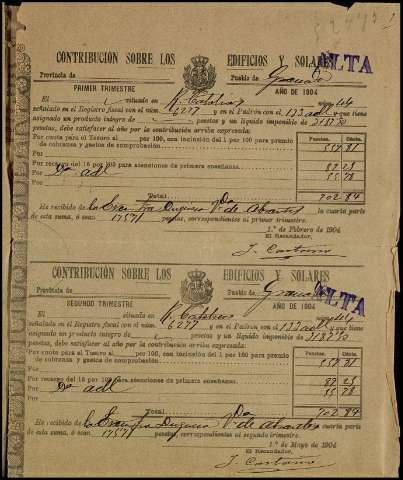 CONTRIBUCIÓN SOBRE LOS EDIFICIOS Y SOLARES
ALTA
Provincia de
Pueblo de Granada
PRIMER TRIMESTRE
AÑO DE 1904
El situado en R. Católicos 44
señalado en el Registro fiscal con el núm. 6277 y en el Padrón con el 133 adl y que tiene
asignado un producto íntegro de pesetas, y un líquido imponible de
pesetas, debe satisfacer al año por la contribución arriba expresada:
Pesetas. Cents.
Por cuota para el Tesoro al por 100, con inclusión del 1 por 100 para premio
de cobranza y gastos de comprobación
Por
Por recargo del 16 por 100 para atenciones de primera enseñanza
Por
Por
Total
702 84
He recibido de la Excma Sra Duquesa Vda de Abrantes la cuarta parte
de esta suma, ó sean 175 71 pesetas, correspondientes al primer trimestre.
1.º de Febrero de 1904
El Recaudador,
CONTRIBUCIÓN SOBRE LOS EDIFICIOS Y SOLARES
ALTA
Provincia de
Pueblo de Granada
SEGUNDO TRIMESTRE
AÑO DE 1904
El situado en R. Católicos 44
señalado en el Registro fiscal con el núm. 6277 y en el Padrón con el 133 adl y que tiene
asignado un producto íntegro de pesetas, y un líquido imponible de
pesetas, debe satisfacer al año por la contribución arriba expresada:
Pesetas. Cents.
Por cuota para el Tesoro al por 100, con inclusión del 1 por 100 para premio
de cobranza y gastos de comprobación
Por
Por recargo del 16 por 100 para atenciones de primera enseñanza
Por
Por
Total
702 84
He recibido de la Excma Sra Duquesa Vda de Abrantes la cuarta parte
de esta suma, ó sean 175 71 pesetas, correspondientes al segundo trimestre.
1.º de Mayo de 1904
El Recaudador,